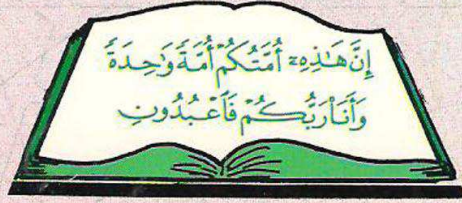 إِنَّ هَـٰذِهِۦٓ أُمَّتُكُمْ أُمَّةً وَٰحِدَةً
وَأَنَا۠ رَبُّكُمْ فَٱعْبُدُونِ